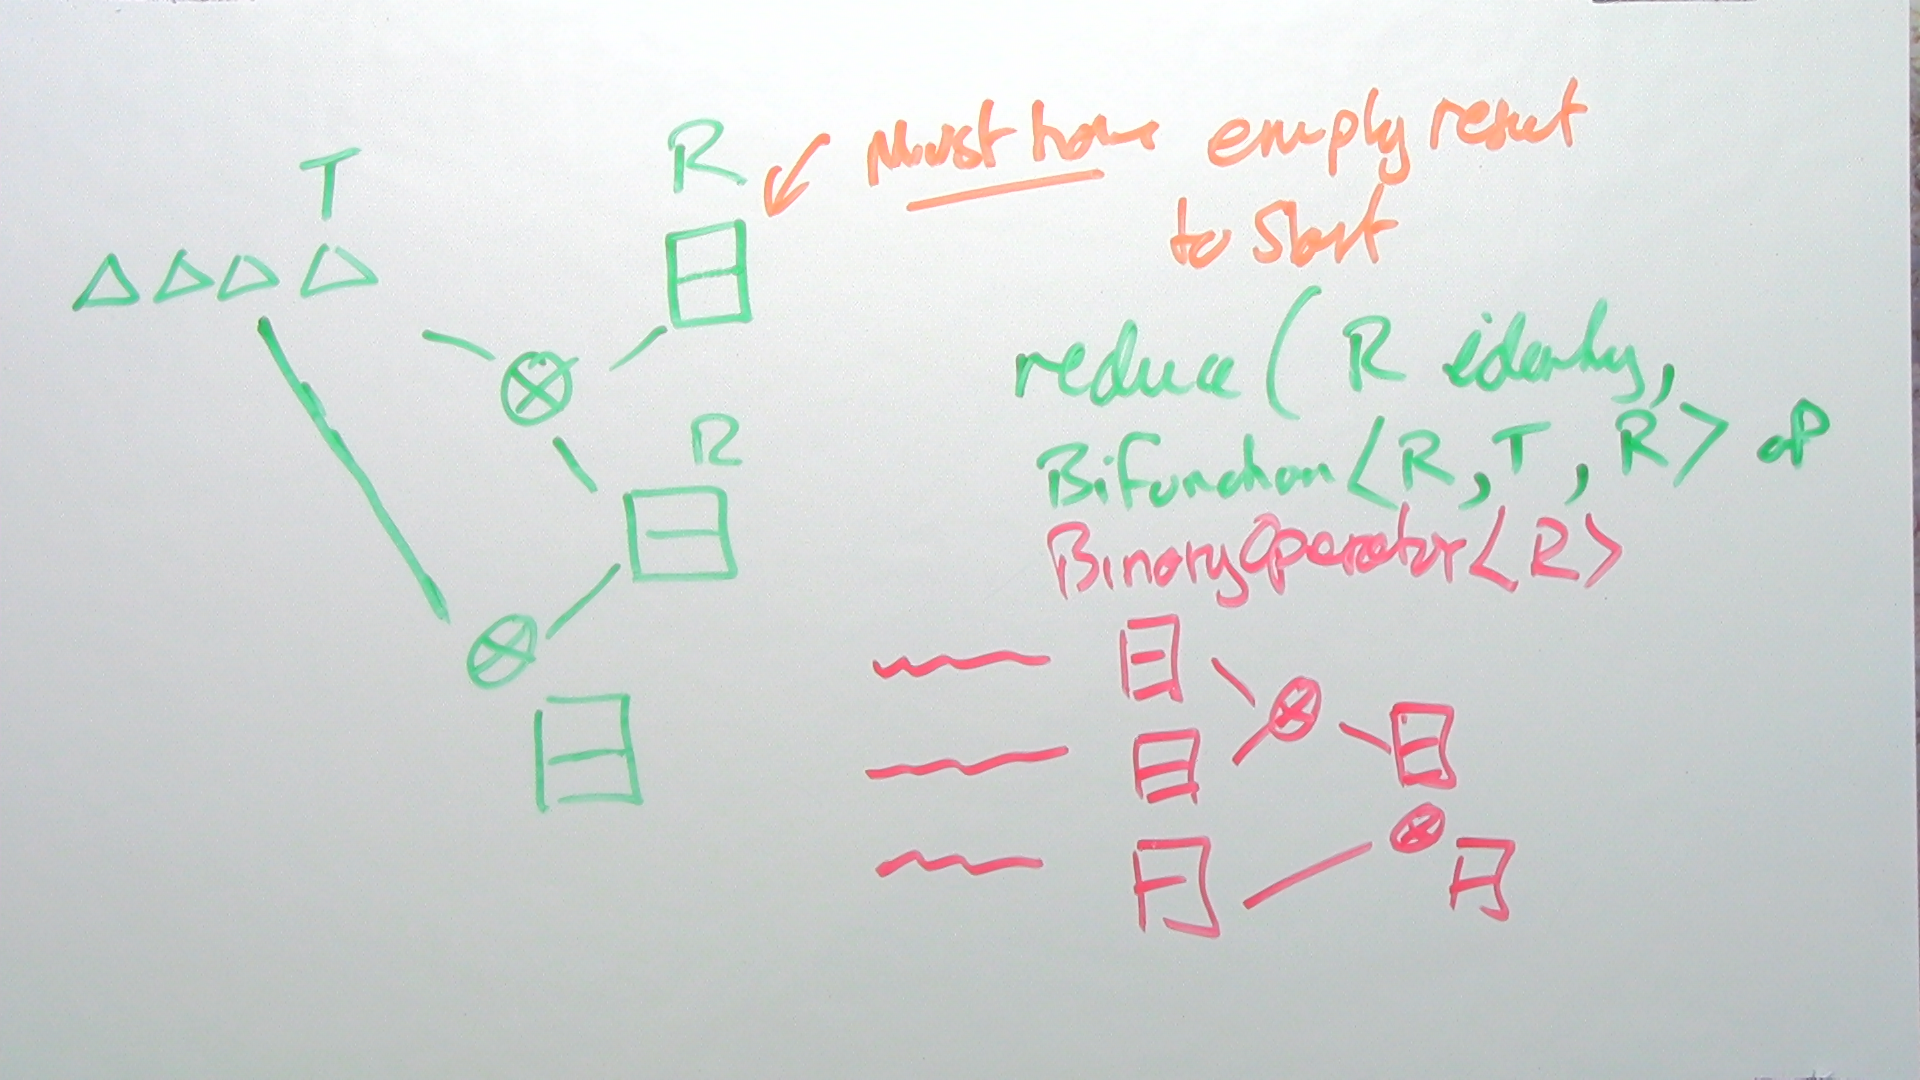 T
R
Must have empty result
to start
reduce( R identity,
Bifunction<R,T,R> op
R
BinaryOperator<R>